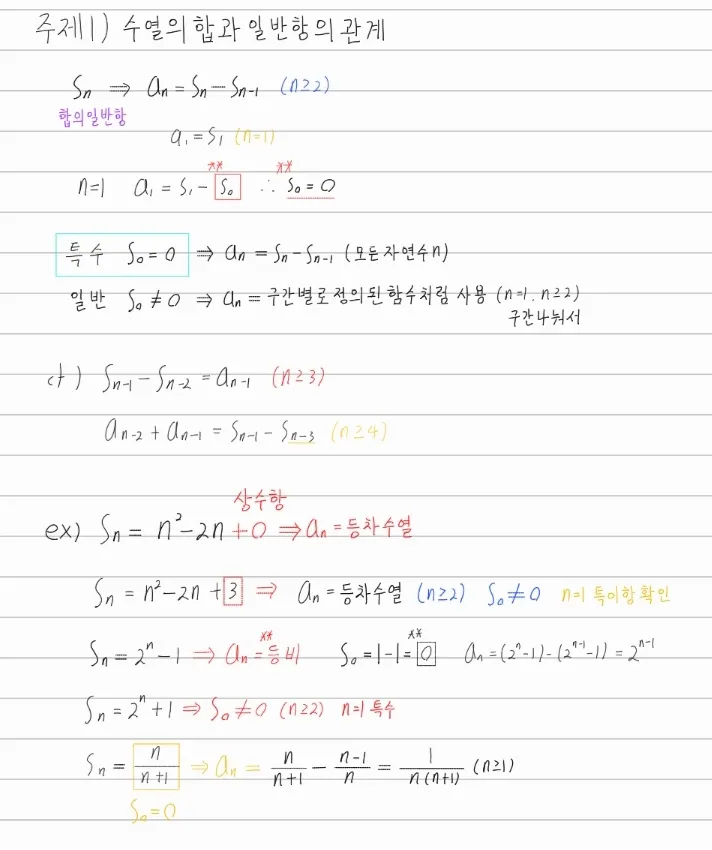 주제1) 수열의 합과 일반항의 관계
Sn ⇒ an = Sn - Sn-1 (n≥2)
합의일반항
a1 = S1 (n=1)
** **
n=1 a1 = S1 - S0 ∴ S0 = 0
특수 S0 = 0 ⇒ an = Sn - Sn-1 (모든자연수 n)
일반 S0 ≠ 0 ⇒ an = 구간별로정의된함수처럼 사용 (n=1, n≥2)
구간나눠서
cf) Sn-1 - Sn-2 = an-1 (n≥3)
an-2 + an-1 = Sn-1 - Sn-3 (n≥4)
상수항
ex) Sn = n² - 2n + 0 ⇒ an = 등차수열
Sn = n² - 2n + 3 ⇒ an = 등차수열 (n≥2) S0 ≠ 0 n=1 특이항확인
** **
Sn = 2ⁿ - 1 ⇒ an = 등비 S0 = 1 - 1 = 0 an = (2ⁿ-1) - (2ⁿ⁻¹-1) = 2ⁿ⁻¹
Sn = 2ⁿ + 1 ⇒ S0 ≠ 0 (n≥2) n=1 특수
Sn = n/(n+1) ⇒ an = n/(n+1) - (n-1)/n = 1/(n(n+1)) (n≥1)
S0 = 0